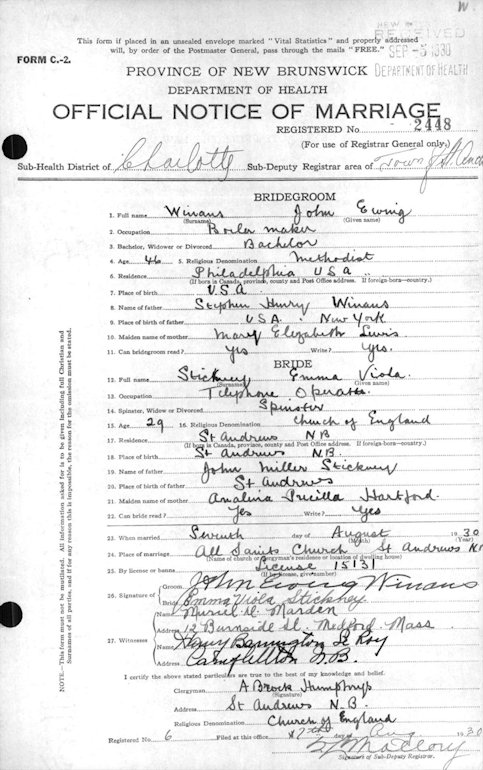 W.
This form if placed in an unsealed envelope marked "Vital Statistics" and properly addressed
will, by order of the Postmaster General, pass through the mails "FREE."
RECEIVED
SEP -5 1930
DEPARTMENT OF HEALTH
FORM C.-2.
PROVINCE OF NEW BRUNSWICK
DEPARTMENT OF HEALTH
OFFICIAL NOTICE OF MARRIAGE
REGISTERED No. 2448
(For use of Registrar General only.)
Sub-Health District of Charlotte Sub-Deputy Registrar area of Town of St.
BRIDEGROOM
1. Full name Winans John Ewing
(Surname) (Given name)
2. Occupation Boiler maker
3. Bachelor, Widower or Divorced Bachelor
4. Age 46 5. Religious Denomination Methodist
6. Residence Philadelphia USA
(If born in Canada, province, county and Post Office address. If foreign-born—country.)
7. Place of birth U.S.A.
8. Name of father Stephen Henry Winans
9. Place of birth of father U.S.A. New York
10. Maiden name of mother Mary Elizabeth Lewis
11. Can bridegroom read? Yes Write? Yes.
BRIDE
12. Full name Stickney Emma Viola.
(Surname) (Given name)
13. Occupation Telephone Operator
14. Spinster, Widow or Divorced Spinster
15. Age 29 16. Religious Denomination Church of England
17. Residence St Andrews NB
(If born in Canada, province, county and Post Office address. If foreign-born—country.)
18. Place of birth St Andrews N.B.
19. Name of father John Miller Stickney
20. Place of birth of father St Andrews
21. Maiden name of mother Hartford.
22. Can bride read? Yes Write? Yes
23. When married Seventh day of August 1930
(Month) (Year)
24. Place of marriage All Saints Church St Andrews
(Name of church or clergyman's residence or location of dwelling house)
25. By license or banns License 15131
(If by license, give number)
26. Signature of Groom John Ewing Winans
Bride Emma Viola Stickney
27. Witnesses Name Muriel Marden
Address 12 Burnside St. Medford Mass
Name Harry Barrington Le Roy
Address Campbellton N.B.
I certify the above stated particulars are to the best of my knowledge and belief.
Clergyman, A Brock Humphrys
Address St Andrews N.B.
Religious Denomination Church of England
Registered No. 6 Filed at this office day of Aug 1930
Mallory
Signature of Sub-Deputy Registrar.
NOTE.—This form must not be mutilated. All information asked for is to be given including full Christian and
Surnames of all parties, and if for any reason this is impossible, the reason for the omission must be stated.